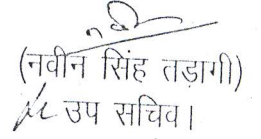 (नवीन सिंह तड़ागी)
उप सचिव।